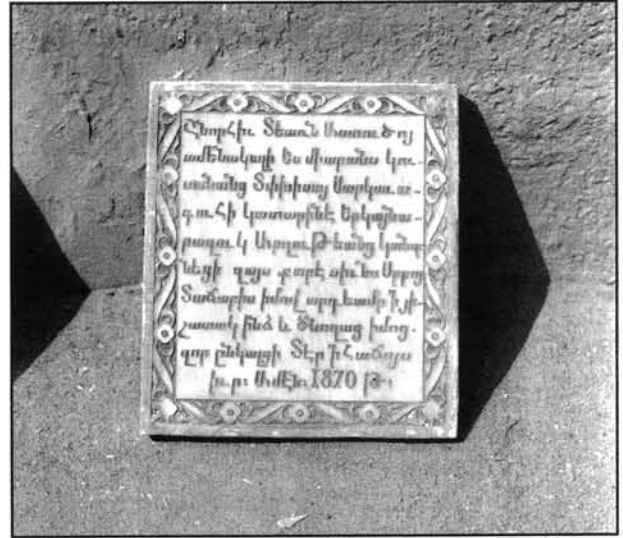 Շնորհիւ Տեառն Աստուծոյ
ամենակալի ես միաբանս կու-
սանանց Տփխիսոյ Սարկաւա-
գուհի Կատարինէ Երկայնա-
բազուկ Արղութեանց կանգ-
նեցի զայս քարէ սիւնս Սրբոյ
Տաճարիս իմով արդեամբ ՚ի յի-
շատակ ինձ և ծնողաց իմոց.
զոր ընկալցի Տէր ՚ի հաճոյս
իւր։ Ամէն։ 1870 թ։